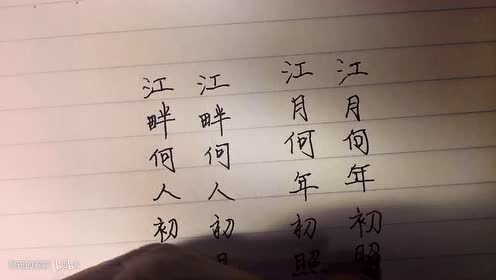 江畔何人初
江畔何人初
江月何年初照
江月何年初照
bilibili